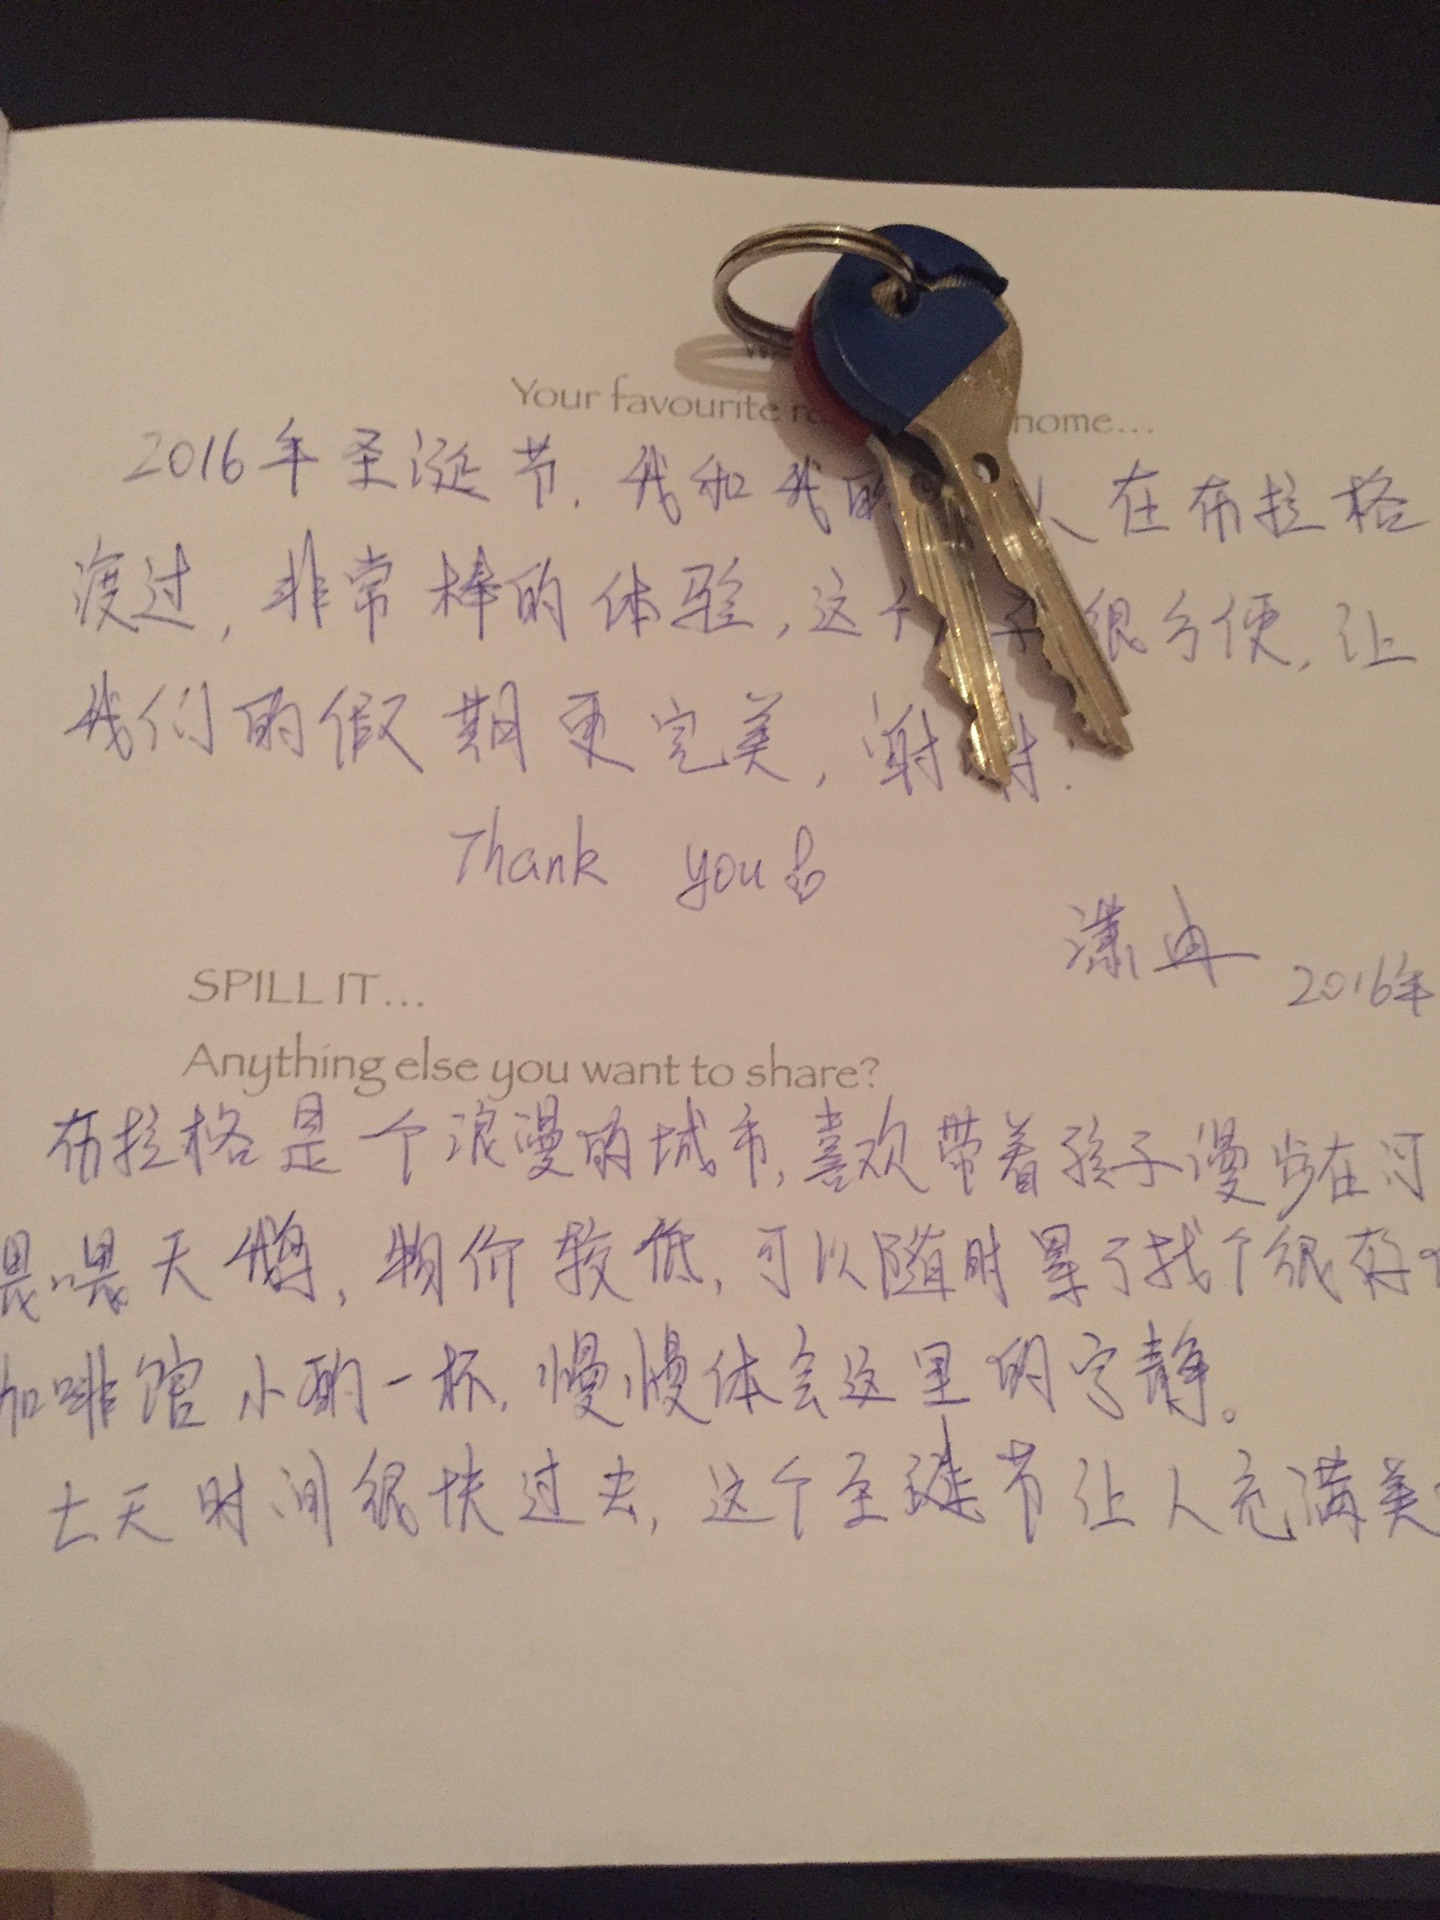 Your favourite home...
2016年圣诞节.我和我的 人在布拉格
渡过,非常棒的体验,这个 子很方便,让
我们的假期更完美,谢谢!
Thank you
潇冉 2016年
SPILL IT...
Anything else you want to share?
布拉格是一个浪漫的城市,喜欢带着孩子漫步在河
喂喂天鹅,物价较低,可以随时累了找个很好
咖啡馆小酌一杯,慢慢体会这里的宁静。
七天时间很快过去,这个圣诞节让人充满美